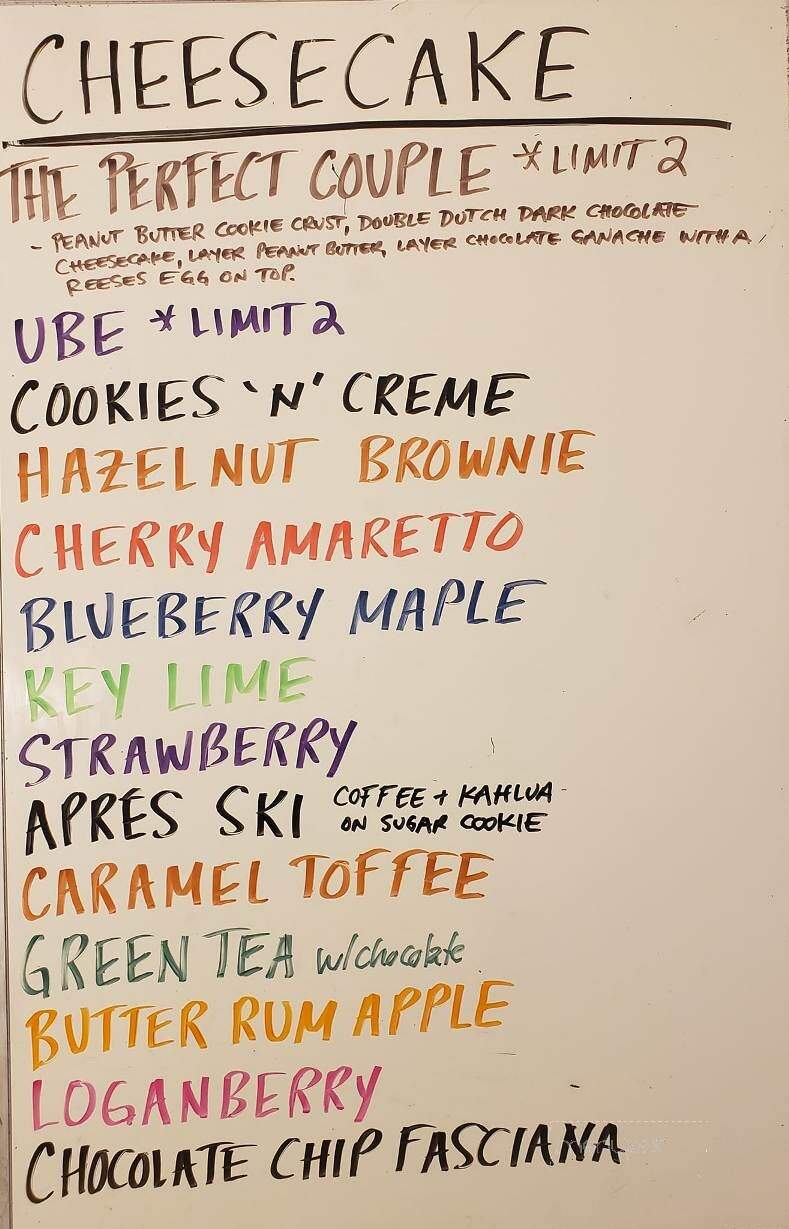 CHEESECAKE
THE PERFECT COUPLE *LIMIT 2
- PEANUT BUTTER COOKIE CRUST, DOUBLE DUTCH DARK CHOCOLATE
CHEESECAKE, LAYER PEANUT BUTTER, LAYER CHOCOLATE GANACHE WITH A
REESES EGG ON TOP.
UBE *LIMIT 2
COOKIES 'N' CREME
HAZELNUT BROWNIE
CHERRY AMARETTO
BLUEBERRY MAPLE
KEY LIME
STRAWBERRY
APRÉS SKI COFFEE + KAHLUA
ON SUGAR COOKIE
CARAMEL TOFFEE
GREEN TEA w/chocolate
BUTTER RUM APPLE
LOGANBERRY
CHOCOLATE CHIP FASCIANA